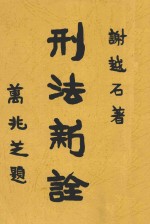 謝越石著
刑法新詮
萬兆芝題